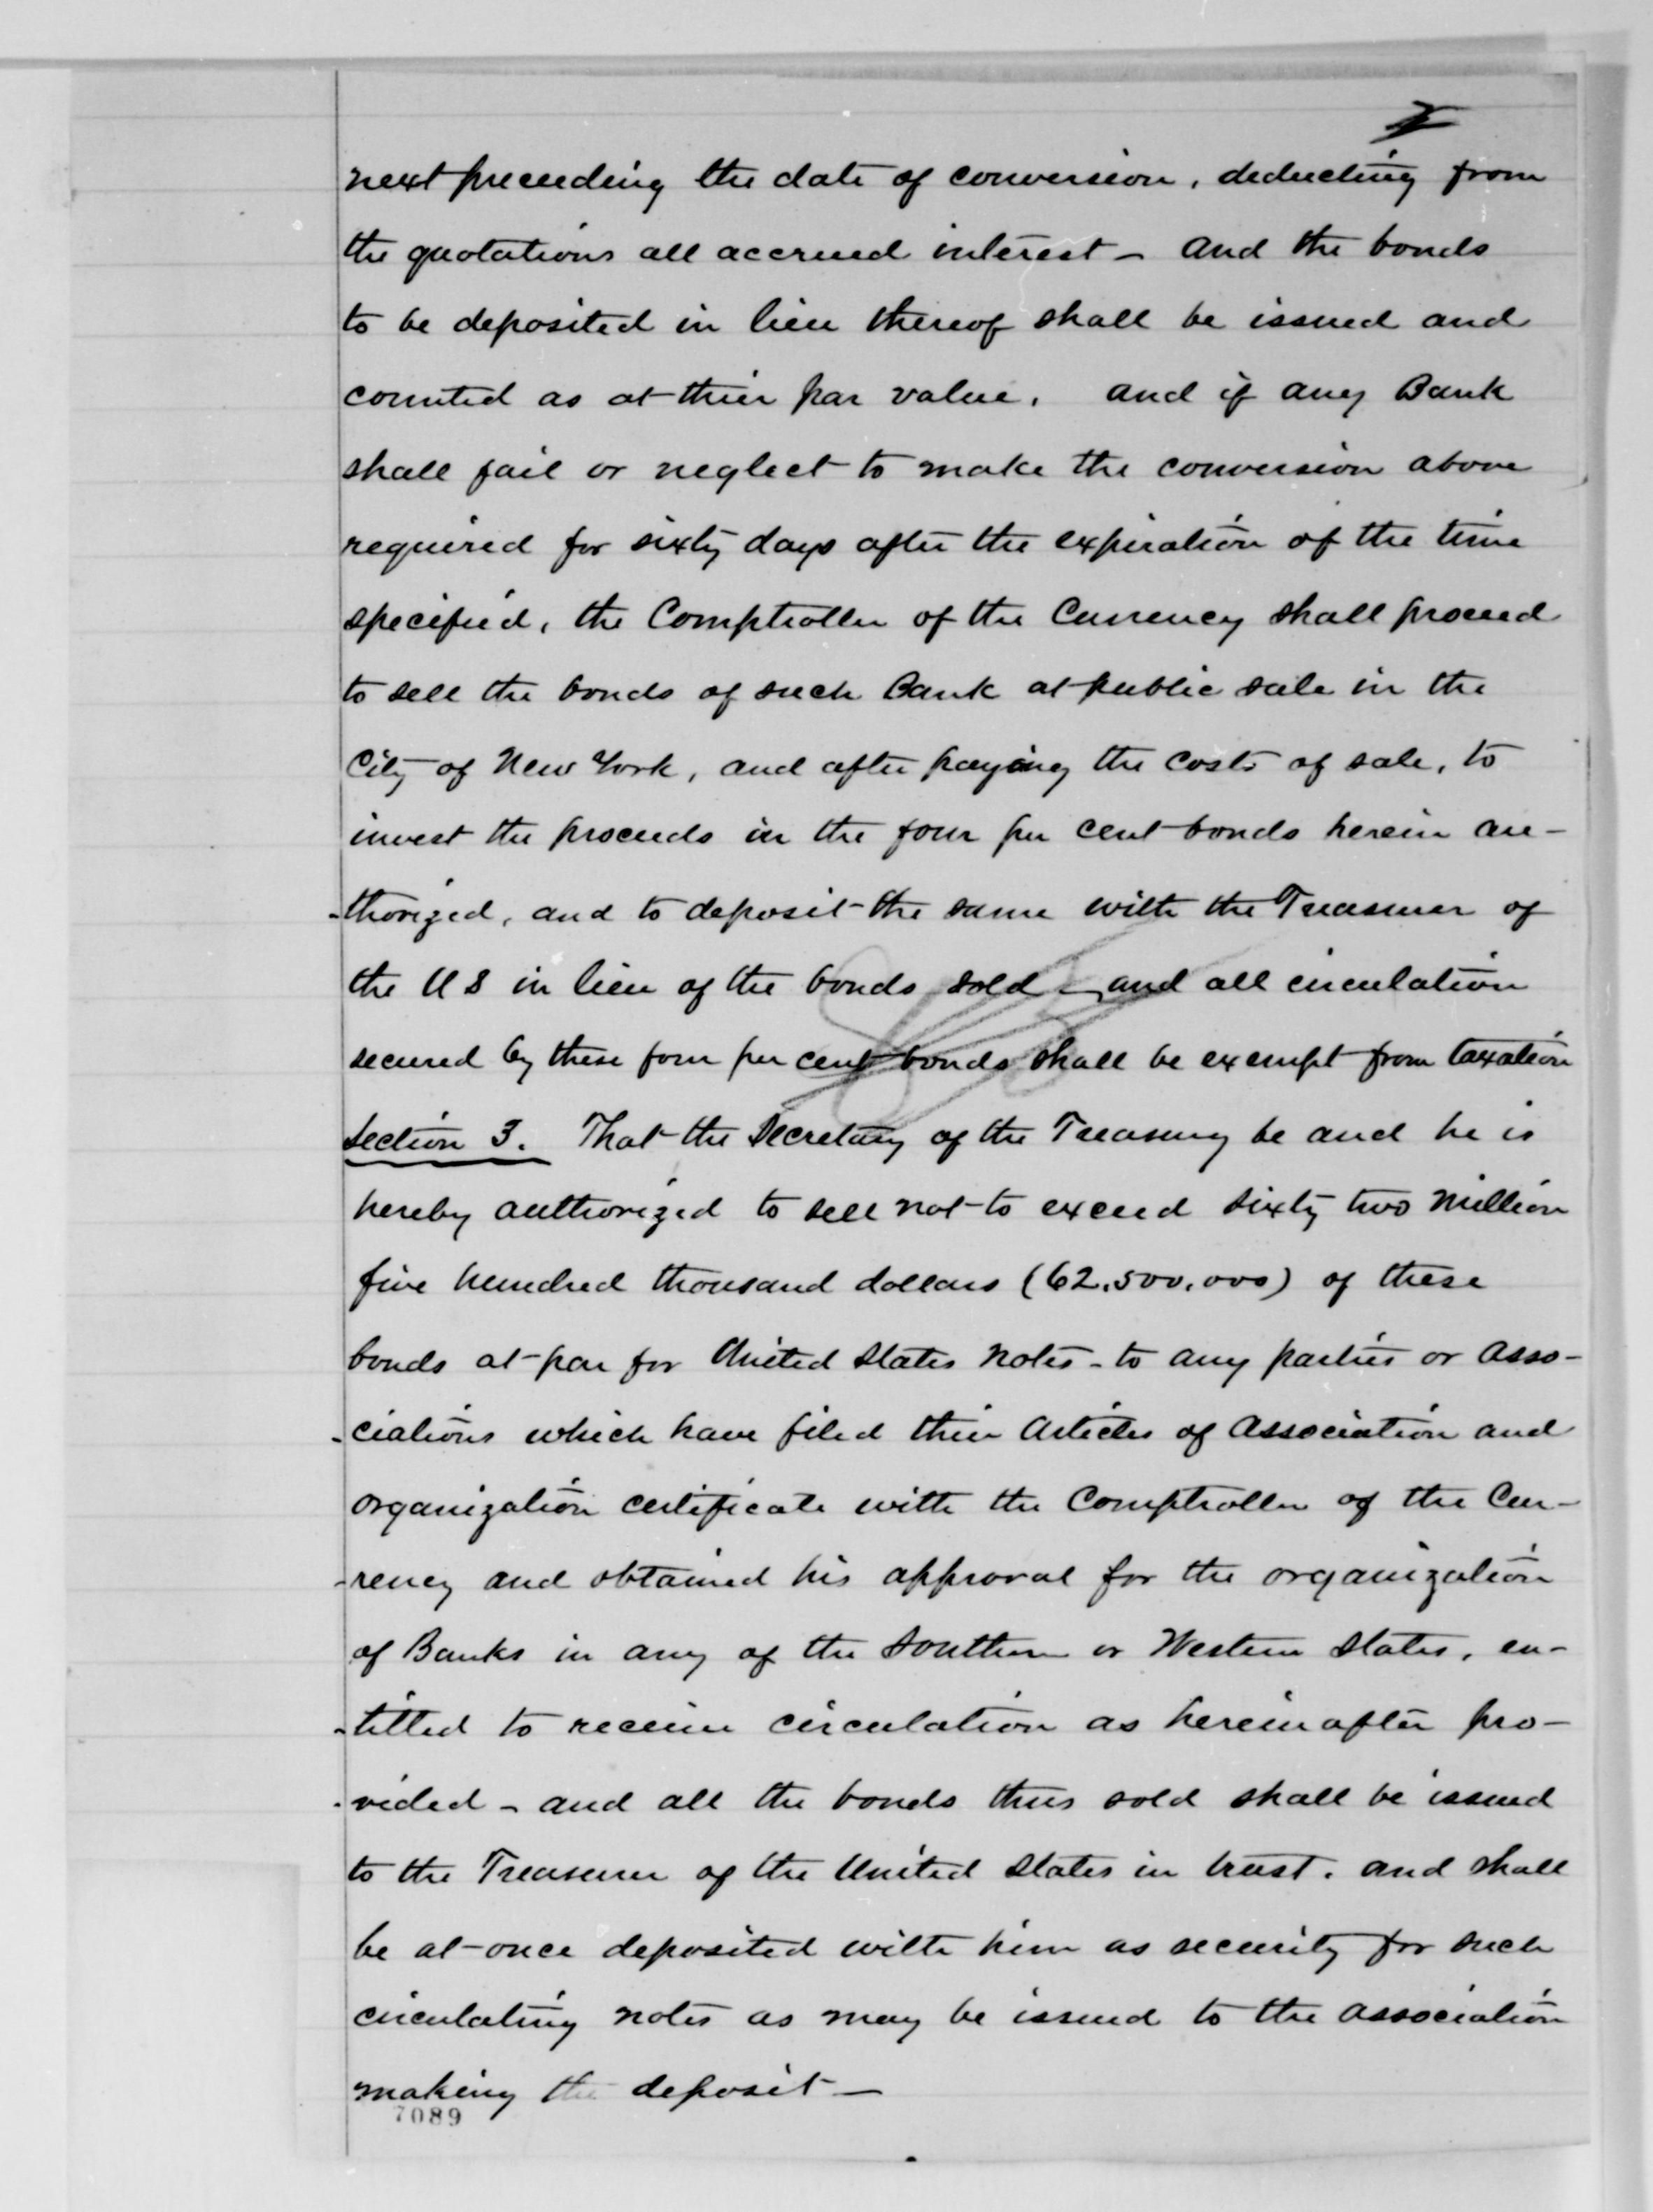 2
next preceeding the date of conversion, deducting from
the quotations all accrued interest - and the bonds
to be deposited in lieu thereof shall be issued and
counted as at their par value. and if any Bank
shall fail or neglect to make the conversion above
required for sixty days after the expiration of the time
specified, the Comptroller of the Currency shall proceed
to sell the bonds of such Bank at public sale in the
City of New York, and after paying the costs of sale, to
invest the proceeds in the four per cent bonds herein au-
-thorized, and to deposit the same with the Treasurer of
the U S in lieu of the bonds sold - and all circulation
secured by these four per cent bonds shall be exempt from taxation
Section 3. That the Secretary of the Treasury be and he is
hereby authorized to sell not to exceed sixty two million
five hundred thousand dollars (62,500,000) of these
bonds at par for United States notes - to any parties or asso-
-ciations which have filed their Articles of Association and
organization certificate with the Comptroller of the Cur-
-rency and obtained his approval for the organization
of Banks in any of the Southern or Western States, en-
-titled to receive circulation as hereinafter pro-
-vided - and all the bonds thus sold shall be issued
to the Treasurer of the United States in trust. and shall
be at once deposited with him as security for such
circulating notes as may be issued to the association
making the deposit -
7089